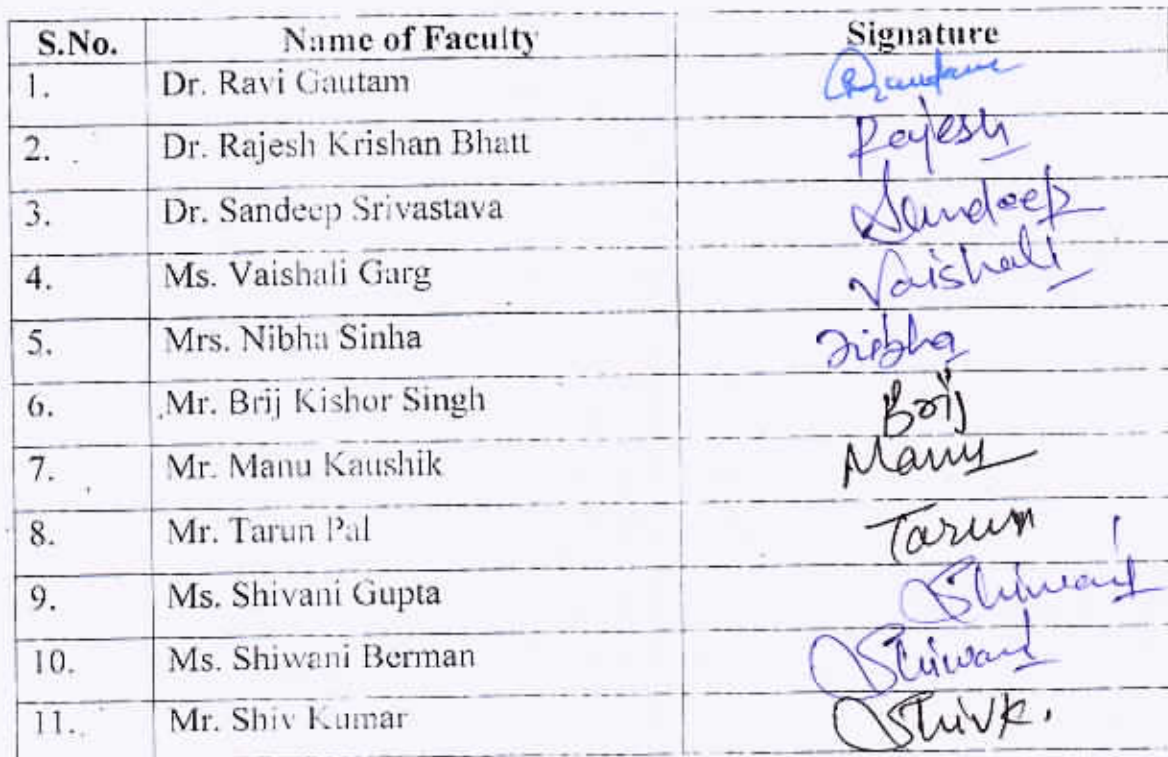 S.No. Name of Faculty Signature
1. Dr. Ravi Gautam
2. Dr. Rajesh Krishan Bhatt Rajesh
3. Dr. Sandeep Srivastava Sandeep
4. Ms. Vaishali Garg Vaishali
5. Mrs. Nibha Sinha Nibha
6. Mr. Brij Kishor Singh Brij
7. Mr. Manu Kaushik Manu
8. Mr. Tarun Pal Tarun
9. Ms. Shivani Gupta Shiwani
10. Ms. Shiwani Berman Shiwani
11. Mr. Shiv Kumar ShivK.